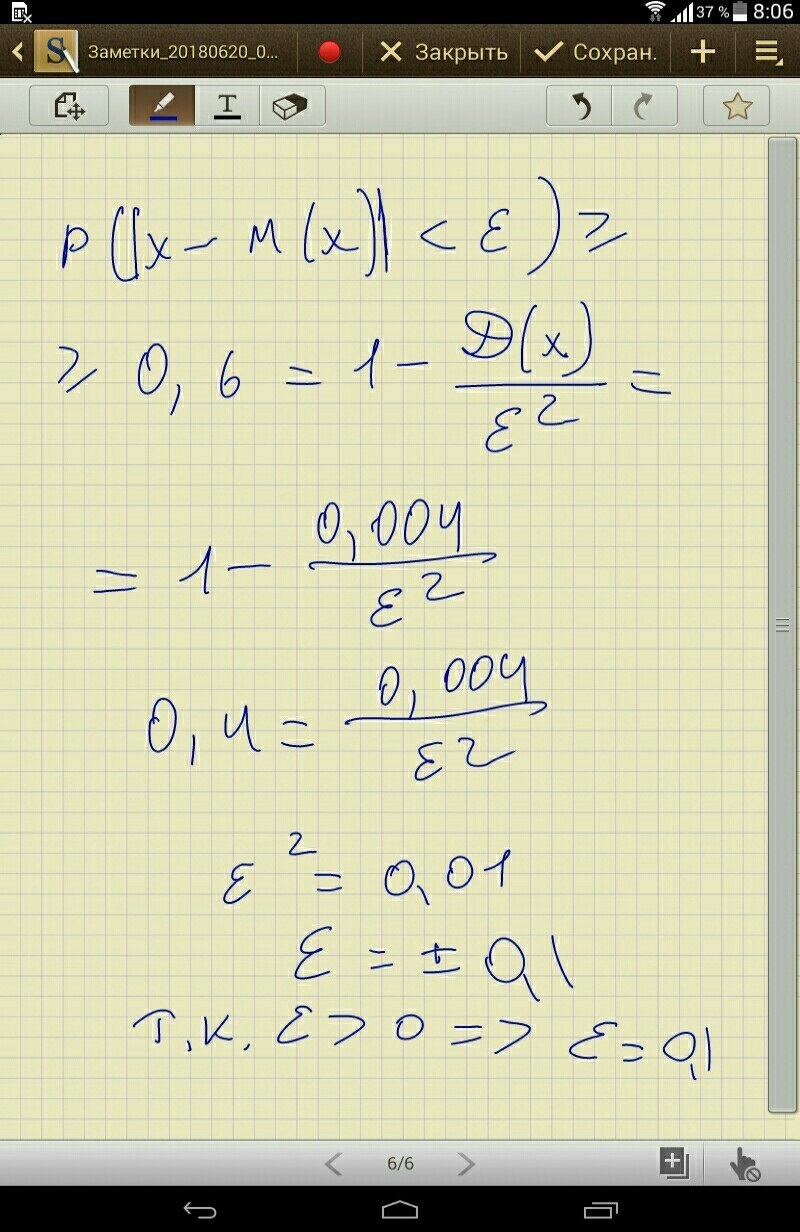 37 % 8:06
Заметки_20180620_0... Закрыть Сохран.
T
P(|x - M(x)| < ε) ≥
≥ 0,6 = 1 - D(x)/ε² =
= 1 - 0,004/ε²
0,4 = 0,004/ε²
ε² = 0,01
ε = ± 0,1
т.к. ε > 0 => ε = 0,1
6/6